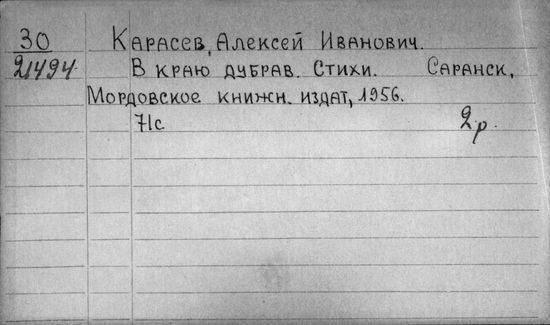 30 Карасев, Алексей Иванович.
21494 В краю дубрав. Стихи. Саранск,
Мордовское книжн. издат, 1956.
71с 2р.